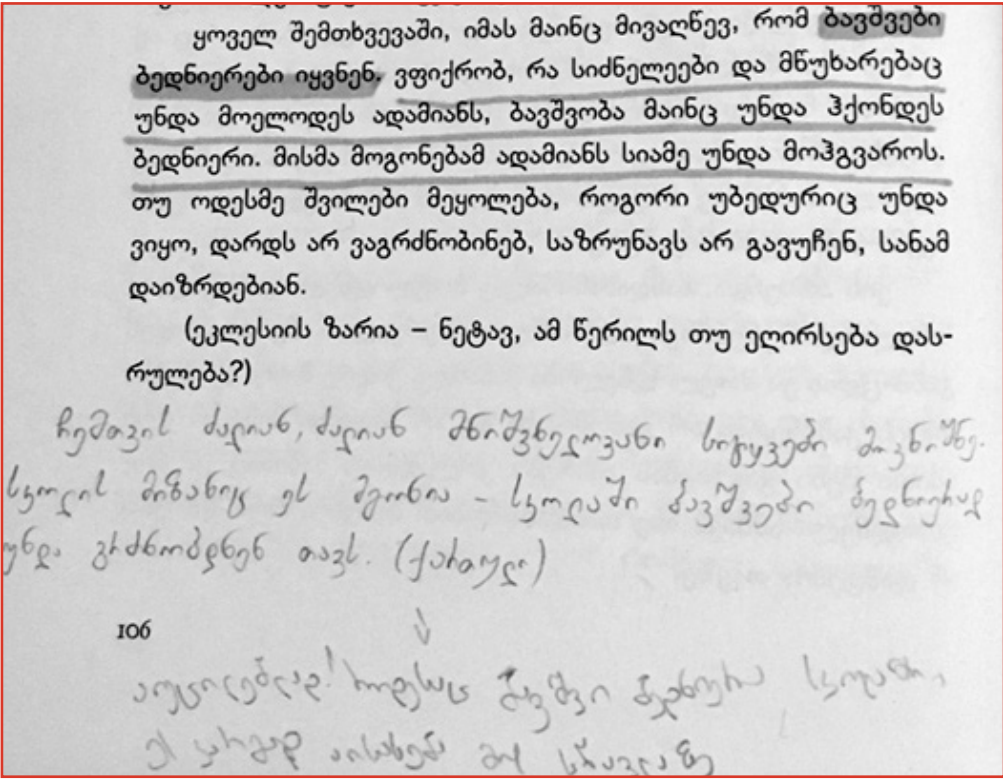 ყოველ შემთხვევაში, იმას მაინც მივაღწევ, რომ ბავშვები
ბედნიერები იყვნენ. ვფიქრობ, რა სიძნელეები და მწუხარებაც
უნდა მოელოდეს ადამიანს, ბავშვობა მაინც უნდა ჰქონდეს
ბედნიერი. მისმა მოგონებამ ადამიანს სიამე უნდა მოჰგვაროს.
თუ ოდესმე შვილები მეყოლება, როგორი უბედურიც უნდა
ვიყო, დარდს არ ვაგრძნობინებ, საზრუნავს არ გავუჩენ, სანამ
დაიზრდებიან.
(ეკლესიის ზარია – ნეტავ, ამ წერილს თუ ეღირსება დას-
რულება?)
ჩემთვის ძალიან, ძალიან მნიშვნელოვანი სიტყვები მოვნიშნე.
სკოლის მიზანიც ეს მგონია – სკოლაში ბავშვები ბედნიერად
უნდა გრძნობდნენ თავს. (ქართული)
106
აუცილებლად! როდესაც ბავშვი ბედნიერია სკოლაში,
ეს კარგად აისახება მის სწავლაზე